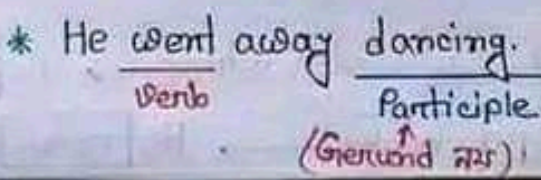 * He went away dancing.
verb Participle
↑
(Gerund নয়)